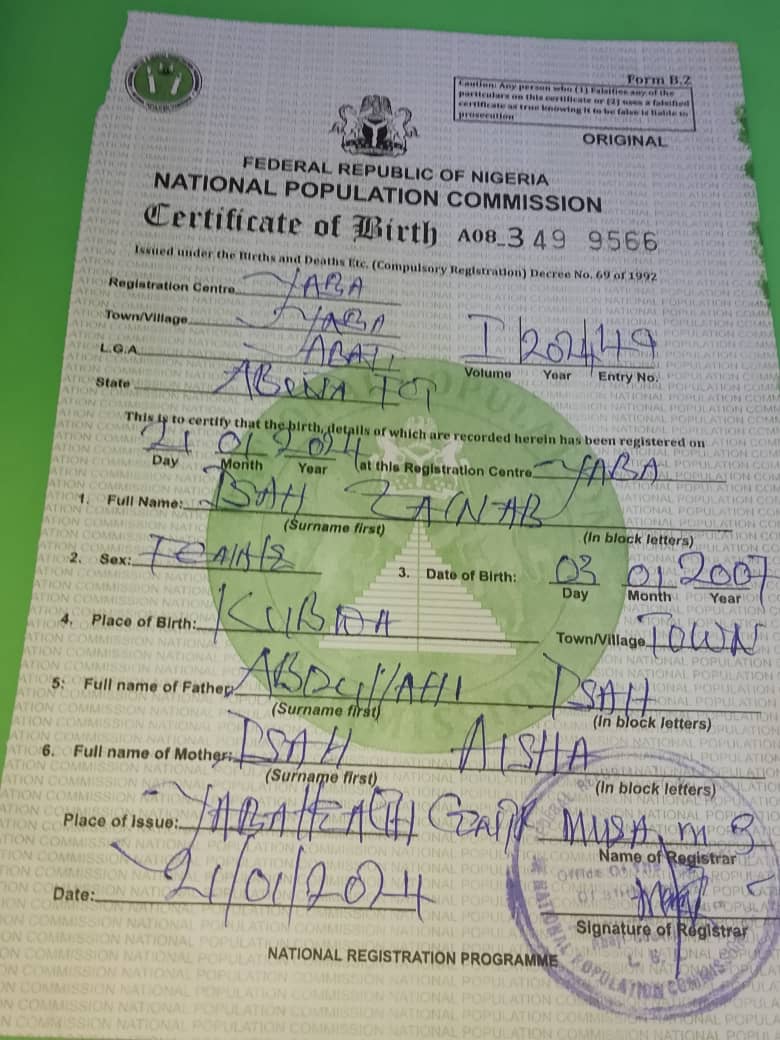 Form B.2
Caution: Any person who (1) Falsifies any of the
particulars on this certificate or (2) uses a falsified
certificate as true knowing it to be false is liable to
prosecution
ORIGINAL
FEDERAL REPUBLIC OF NIGERIA
NATIONAL POPULATION COMMISSION
Certificate of Birth A08-349 9566
Issued under the Births and Deaths Etc. (Compulsory Registration) Decree No. 69 of 1992
Registration Centre YABA
Town/Village YABA
L.G.A
I 2024 49
Volume Year Entry No.
State
This is to certify that the birth, details of which are recorded herein has been registered on
21 01 2024
Day Month Year (at this Registration Centre YABA
1. Full Name: ISAH ZAINAB
(Surname first) (In block letters)
2. Sex:
3. Date of Birth: 03 01 2007
Day Month Year
4. Place of Birth: Town/Village TOWN
5: Full name of Father: ISAH
(Surname first) (In block letters)
6. Full name of Mother: ISAH AISHA
(Surname first) (In block letters)
Place of Issue: YABA MUSA M B
Name of Registrar
Date: 21/01/2024
Signature of Registrar
NATIONAL REGISTRATION PROGRAMME
NATIONAL POPULATION COMMISSION